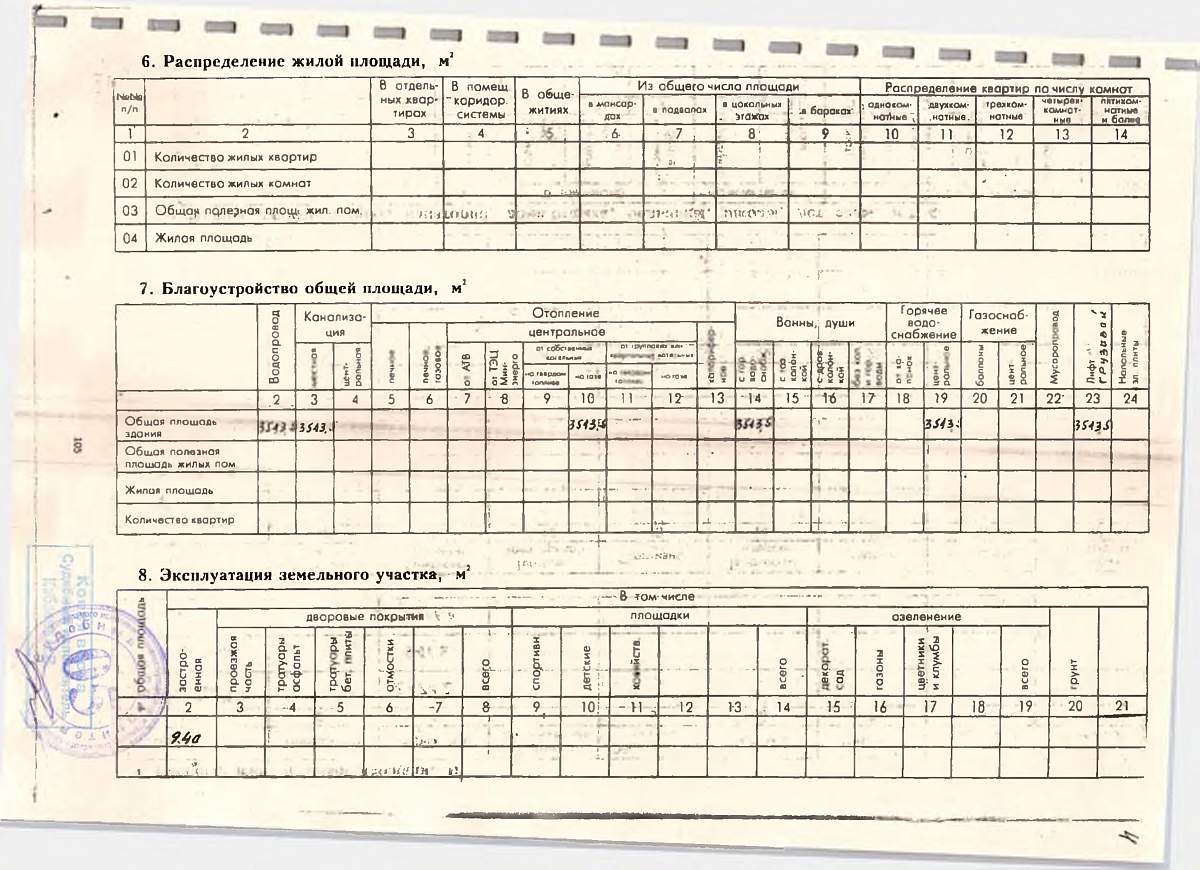 6. Распределение жилой площади, м²
№№ п/п
В отдельных квартирах
В помещ. коридор. системы
В общежитиях
Из общего числа площади
Распределение квартир по числу комнат
в мансардах
в подвалах
в цокольных этажах
в бараках
однокомнатные
двухкомнатные
трехкомнатные
четырехкомнатные
пятикомнатные и более
1 2 3 4 5 6 7 8 9 10 11 12 13 14
01 Количество жилых квартир
02 Количество жилых комнат
03 Общая полезная площ. жил. пом.
04 Жилая площадь
7. Благоустройство общей площади, м²
Водопровод
Канализация
Отопление
Ванны, души
Горячее водоснабжение
Газоснабжение
Мусоропровод
Лифт
Грузовой
Напольные эл. плиты
местная
центральная
печное
печное, газовое
центральное
от АТВ
от ТЭЦ Минэнерго
от собственных котельных
на твердом топливе
на газе
на газе
калориферное
с гор. водоснабж.
с газ. колонкой
с дров. колонкой
без кол. и гор. воды
от колонок
центральное
баллоны
центральное
2 3 4 5 6 7 8 9 10 11 12 13 14 15 16 17 18 19 20 21 22 23 24
Общая площадь здания 3513,5 3513,5 3513,5 3513,5 3513,5 3513,5
Общая полезная площадь жилых пом
Жилая площадь
Количество квартир
105
8. Эксплуатация земельного участка, м²
общая площадь
В том числе
застроенная
дворовые покрытия
площадки
озеленение
проезжая часть
тратуары асфальт
тратуары бет. плиты
отмостки
всего
спортивн
детские
хозяйств.
всего
декорат. сад
газоны
цветники и клумбы
всего
грунт
2 3 4 5 6 7 8 9 10 11 12 13 14 15 16 17 18 19 20 21
4